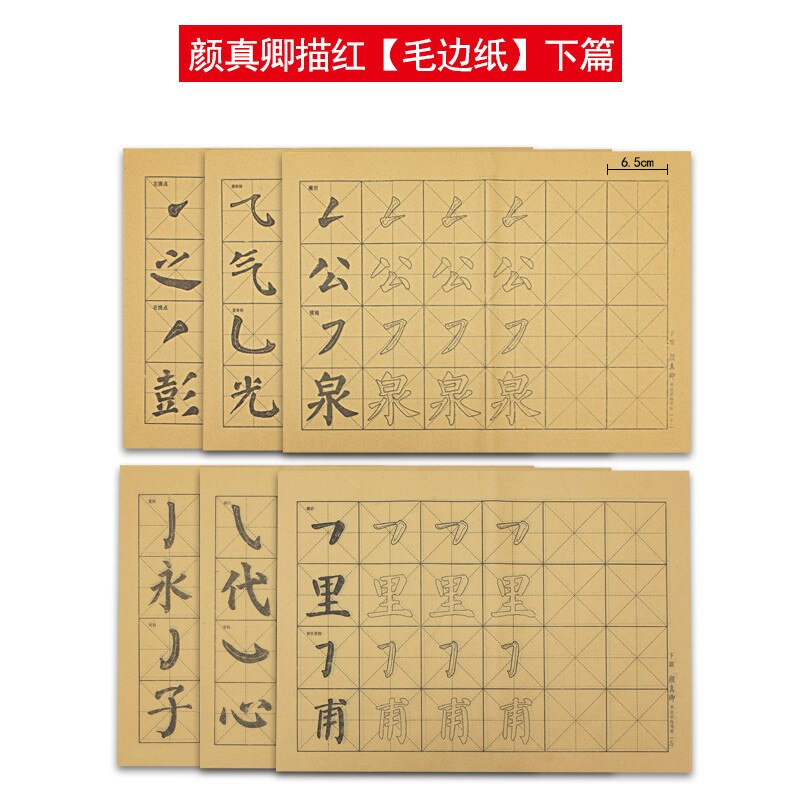 颜真卿描红【毛边纸】下篇
6.5cm
之
彭
气
光
公 公 公 公
泉 泉 泉 泉
下篇 颜真卿
永
子
代
心
横折
里 里 里 里
甫 甫 甫 甫
下篇 颜真卿